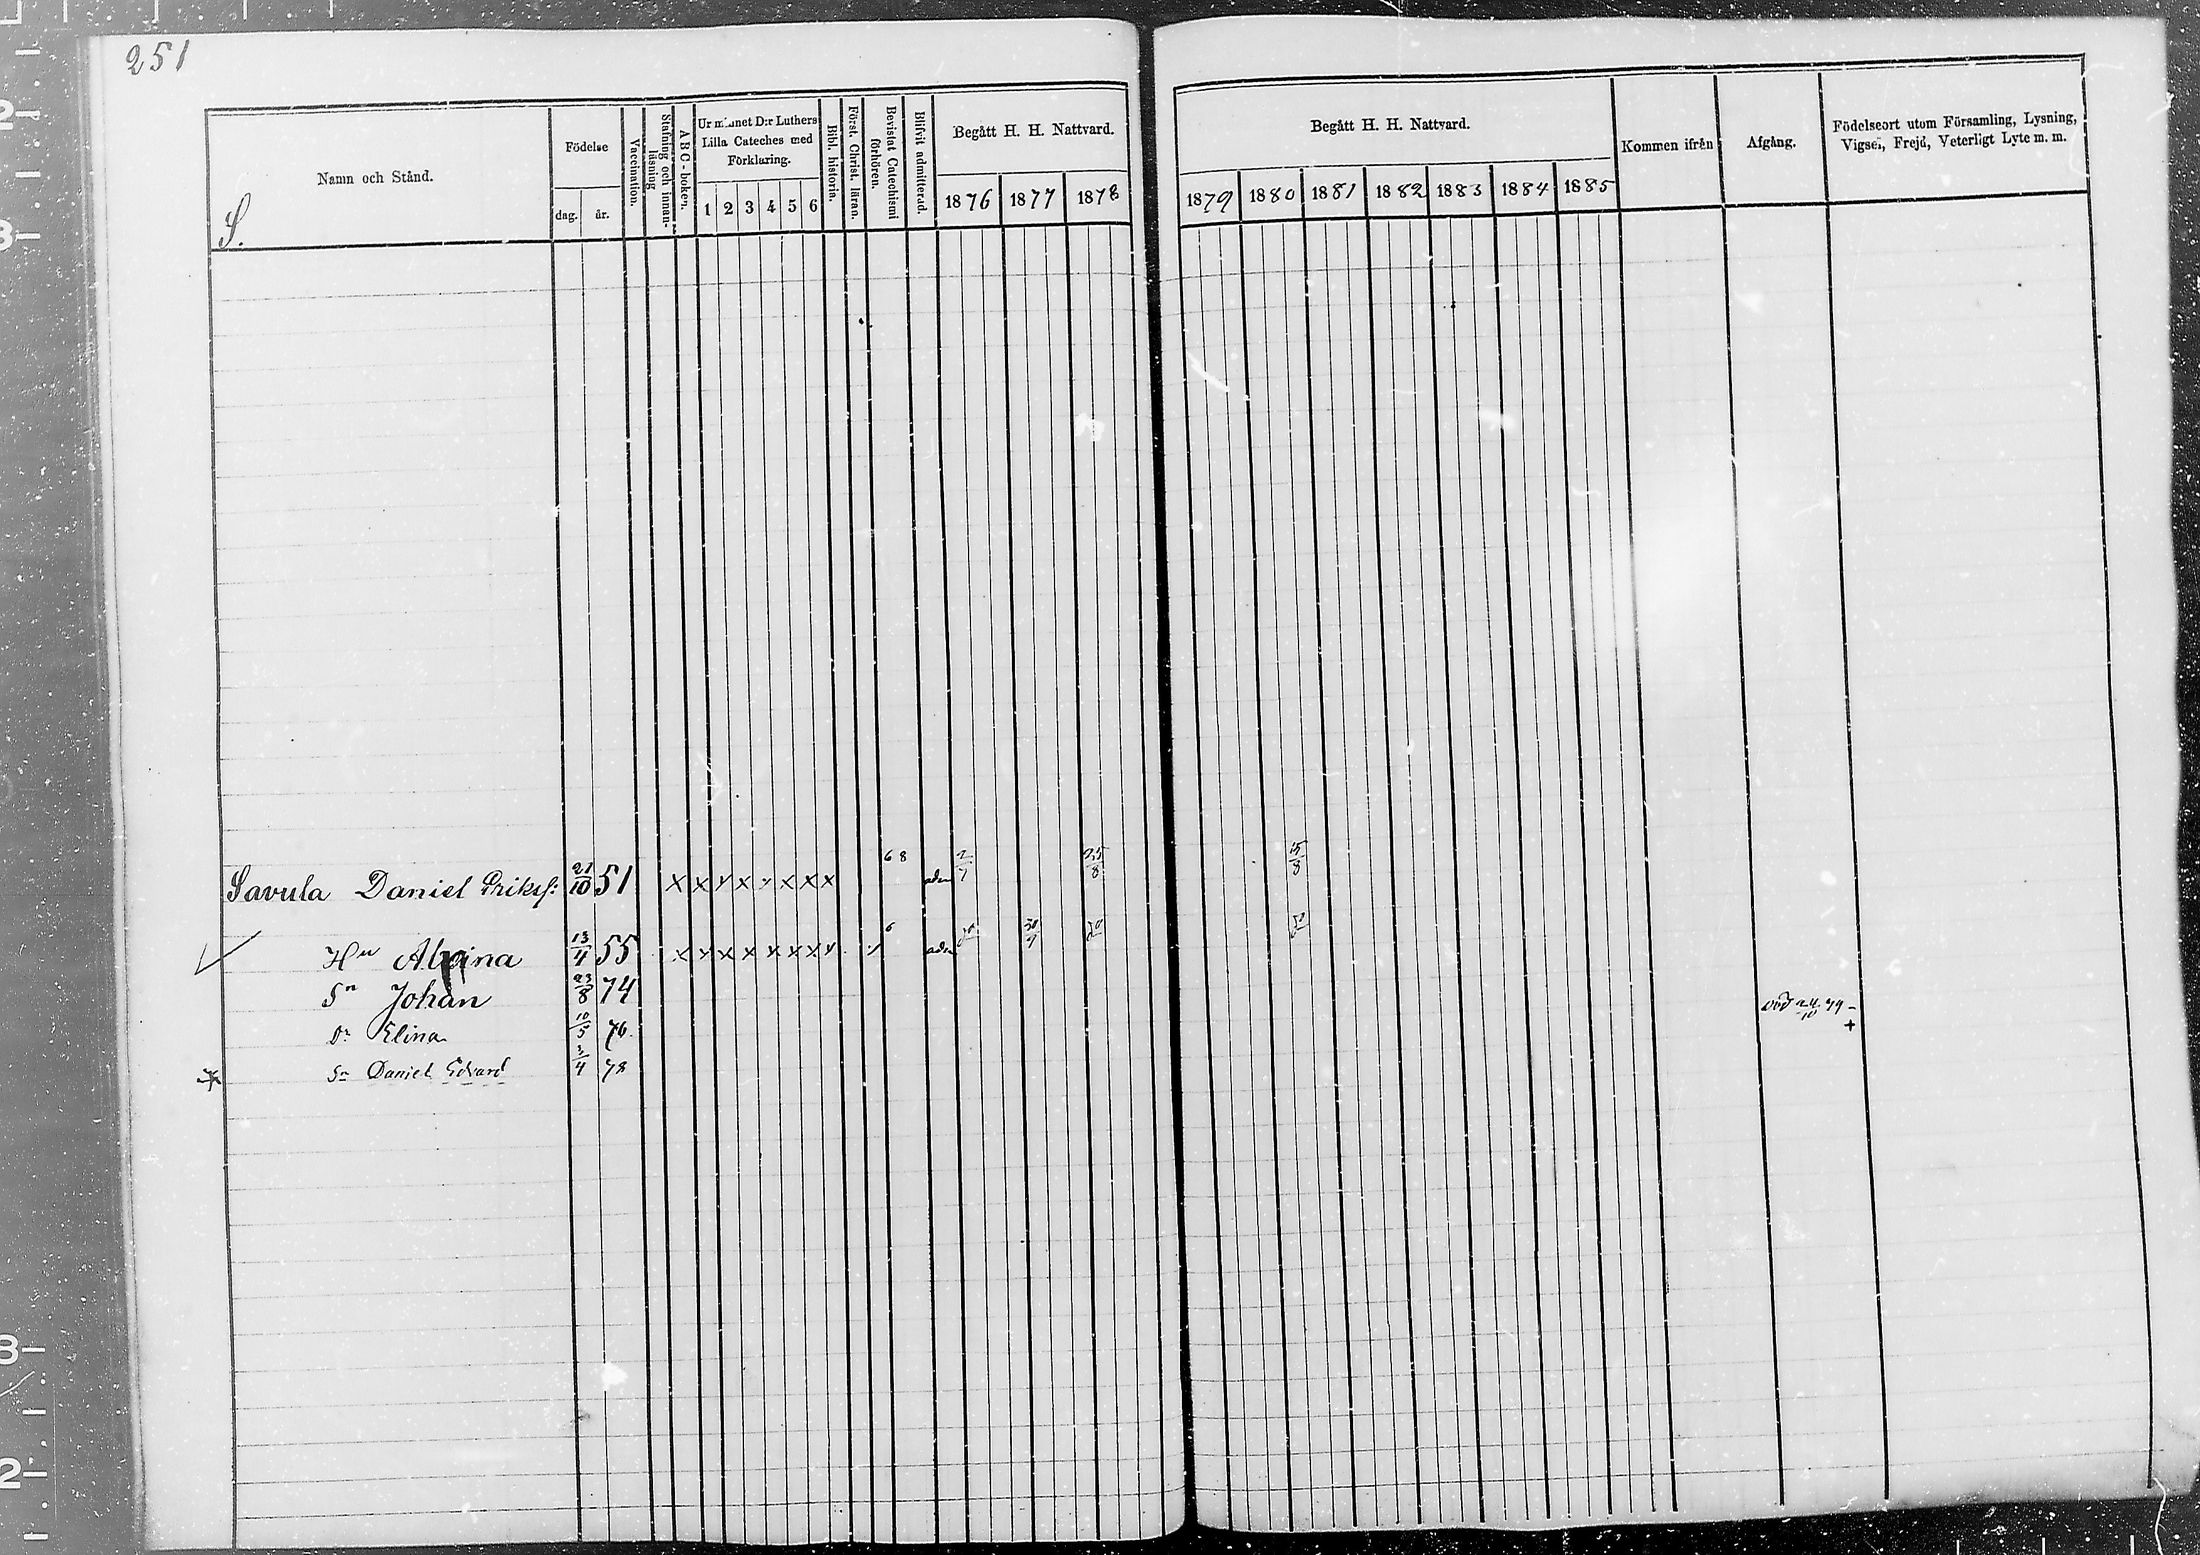 251
Namn och Stånd.
S.
Födelse
dag. år.
Vaccination.
Stafning och innan-läsning
ABC-boken.
Ur minnet D:r Luthers Lilla Cateches med Förklaring.
1 2 3 4 5 6
Bibl. historia.
Först. Christ. läran.
Bevistat Catechismi förhören.
Blifvit admitterad.
Begått H. H. Nattvard.
1876 1877 1878
Begått H. H. Nattvard.
1879 1880 1881 1882 1883 1884 1885
Kommen ifrån
Afgång.
Födelseort utom Församling, Lysning, Vigsel, Frejd, Veterligt Lyte m. m.
Savula Daniel Eriksf: 21/10 51 x x x x x x x x 68 adm 2/7 25/8 15/8
Hu Alvina 13/4 55 x x x x x x x x 6 adm 30/9
Sn Johan 23/8 74
Dr Elina 10/5 76 död 24/10 79 +
Sn Daniel Edvard 3/4 78